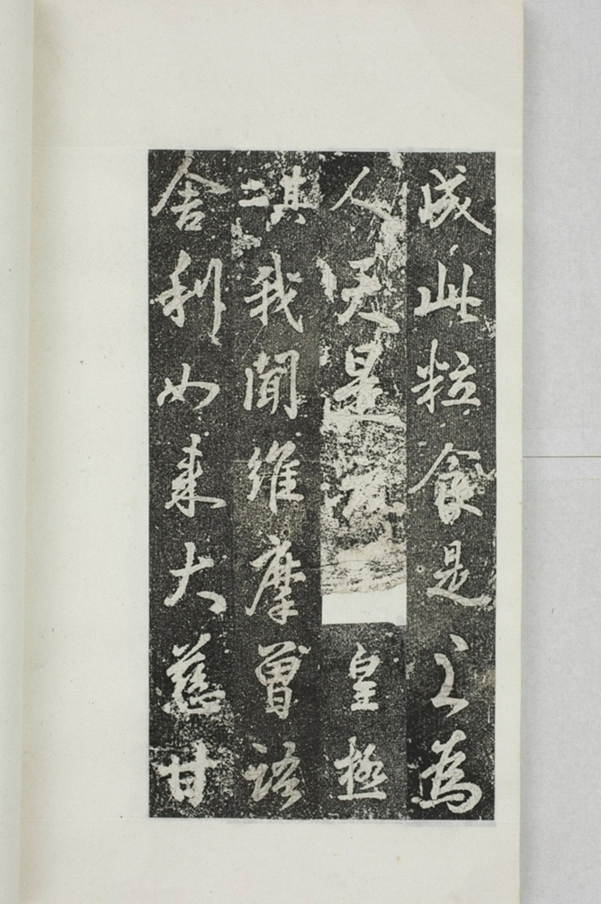 成此粒食是之為
人天是皇極
其我聞維摩曾語
舍利如来大慈甘